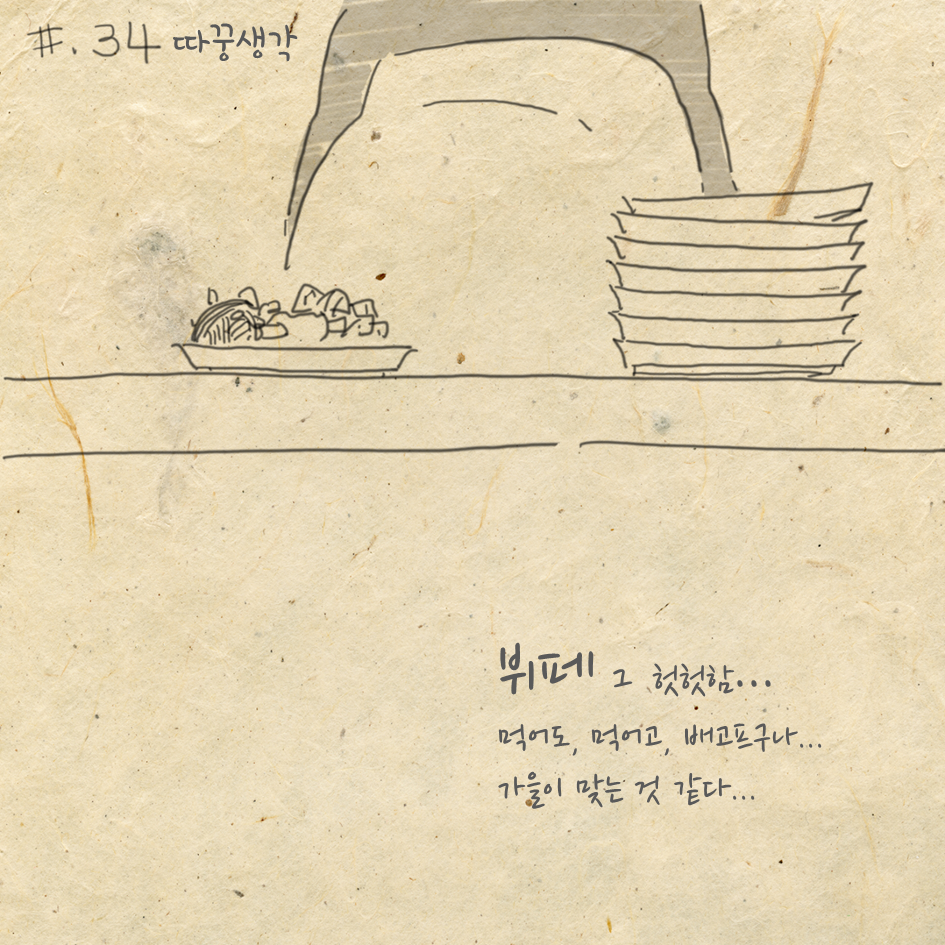 #. 34 따꿍생각
뷔페 그 헛헛함...
먹어도, 먹어고, 배고프구나...
가을이 맞는 것 같다...